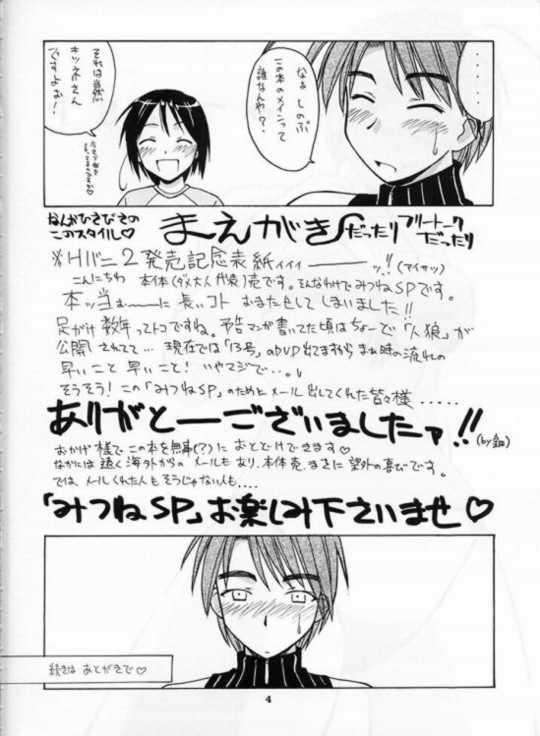 ・・・・
なぁ しのぶ
この本のメインって
誰なんや?
それは当然
キツネさん
ですよぉ!
なんかひさびさの
このスタイル♡
まえがき
だったり
フリートーク
だったり
※Hバニ2発売記念表紙ィィィ――ッ!!(アイサツ)
こんにちわ 本体(ダメ大人代表)売です。そんなわけでみつねSPです。
本ッ当ぉ〜〜に長いコト おまたせして しまいました!!
足がけ数年ってトコですね。予告マンが書いてた頃はちょーど「人狼」が
公開されてて… 現在では「13号」のDVD出てますから まぁ時の流れの
早いこと早いこと! いやマジで・・。
そうそう!この「みつねSP」のためにと メール出してくれた皆々様 .....
ありがとーございましたァ!!
おかげ様でこの本を無事(?)に おとどけできます♡
なかには遠く海外からの メールもあり、本体売、まさに望外の喜びです。
では、メールくれた人も そうじゃない人も....
「みつねSP」お楽しみ下さいませ♡
続きは あとがきで♡
4